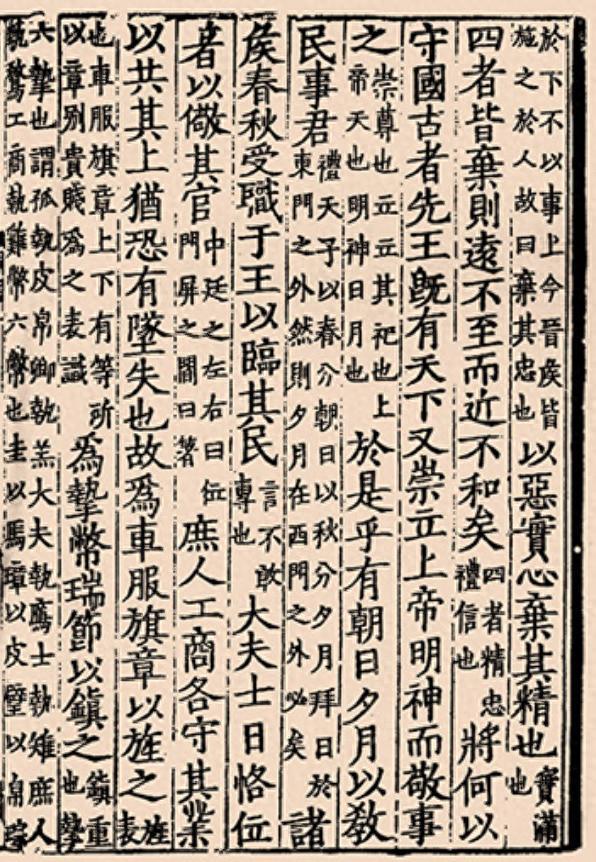 於下不以事上今晉侯皆施之於人故曰棄其忠也以惡實心棄其精也實滿也
四者皆棄則遠不至而近不和矣四者精忠禮信也將何以
守國古者先王既有天下又崇立上帝明神而敬事
之崇尊也立立其祀也上帝天也明神日月也於是乎有朝日夕月以教
民事君禮天子以春分朝日以秋分夕月拜日於東門之外然則夕月在西門之外必矣諸
侯春秋受職于王以臨其民言不敢專也大夫士日恪位
者以儆其官中廷之左右曰位門屏之間曰著庶人工商各守其業
以共其上猶恐有墜失也故爲車服旗章以旌之旌表
也車服旗章上下有等所以章别貴賤爲之表識爲摯幣瑞節以鎮之鎮重也摯
六摯也謂孤執皮帛卿執羔大夫執鴈士執雉庶人執鶩工商執雞幣六幣也圭以馬璋以皮璧以帛琮